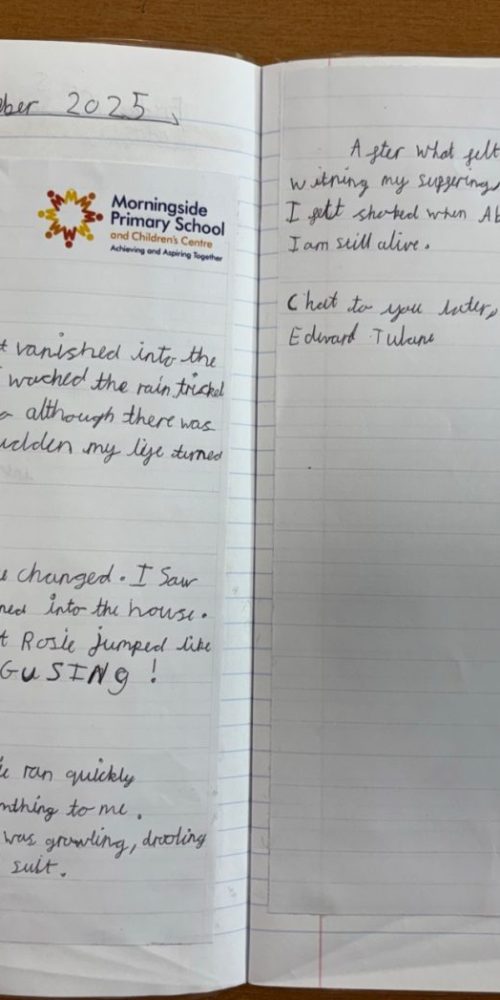 ber 2025
Morningside
Primary School
and Children's Centre
Achieving and Aspiring Together
vanished into the
wached the rain trickel
although there was
udden my lige turned
changed. I Saw
ned into the house.
t Rosie jumped like
GUSING!
ran quickly
nthing to me.
was growling, drooling
suit.
After what felt
witning my suggering,
I gelt shoked when Ab
I am still alive.
Chat to you later,
Edward Tulane